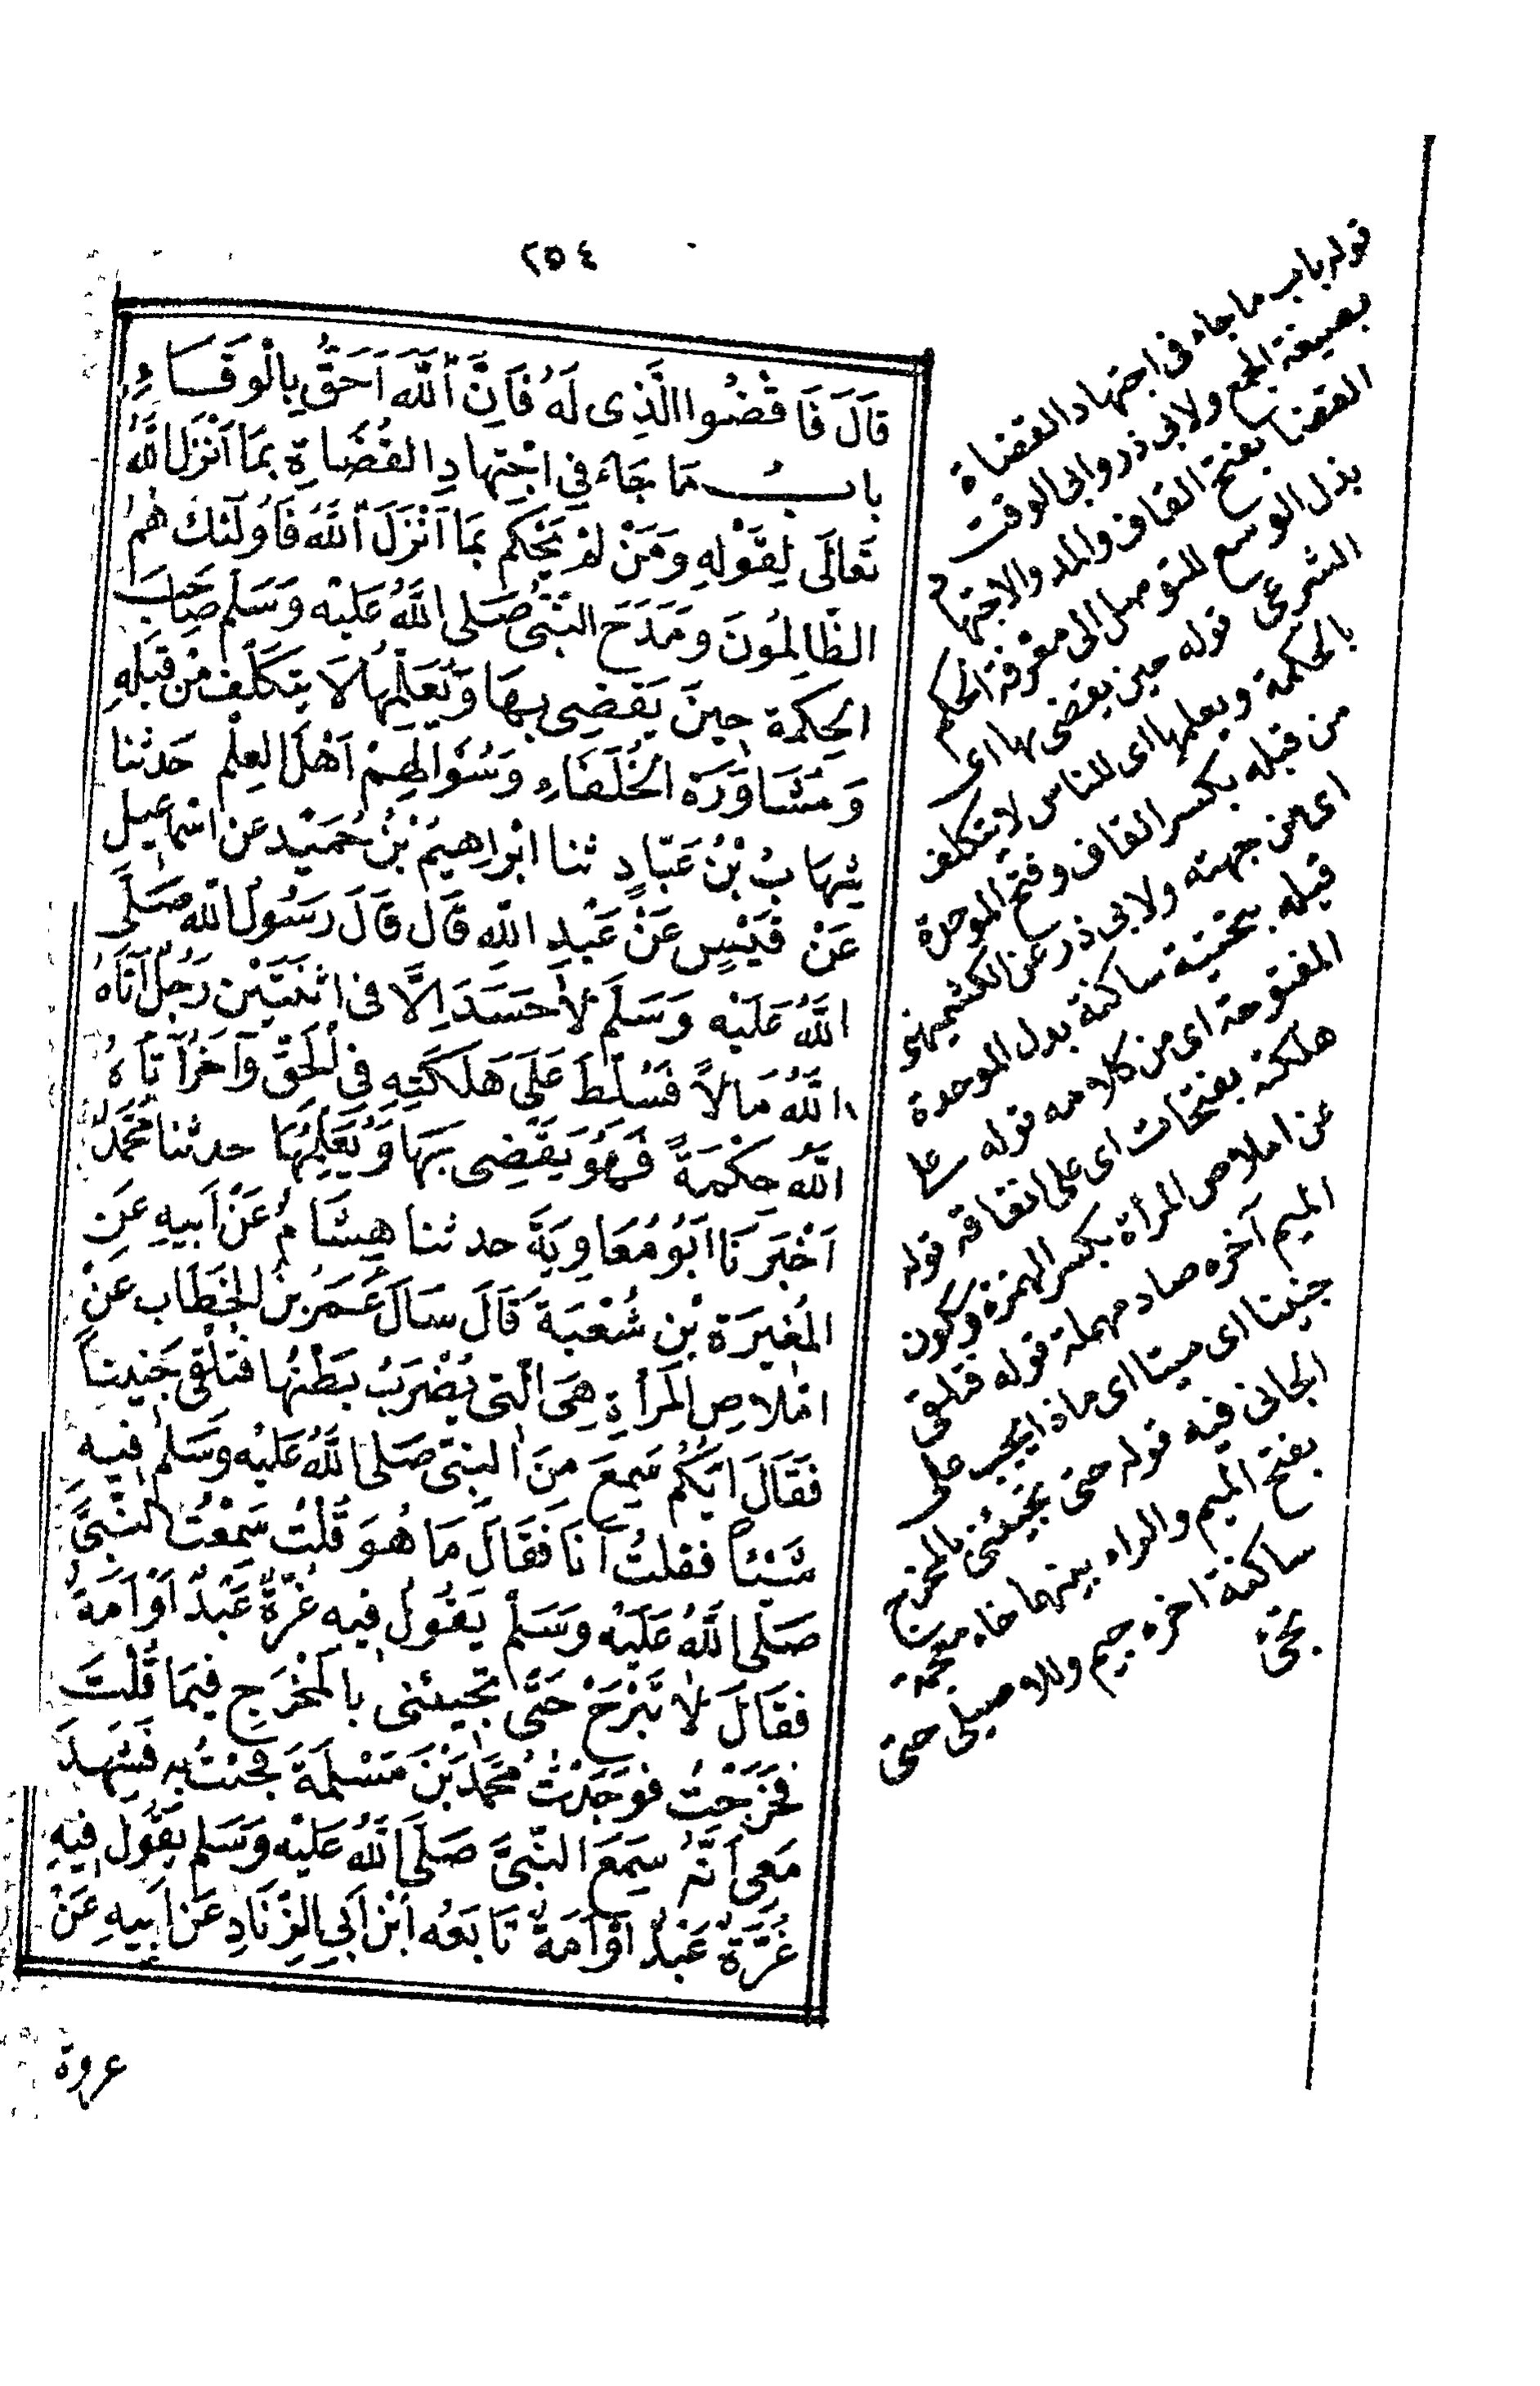 ٢٥٤
قَالَ فَاقْضُوا الَّذِى لَهُ فَاِنَّ اللّٰهَ اَحَقُّ بِالْوَفَاءِ
بابُ مَا جَاءَ فِى اجْتِهَادِ القُضَاةِ بِمَا اَنْزَلَ اللّٰهُ
تَعَالَى لِقَوْلِهِ وَمَنْ لَمْ يَحْكُم بِمَا اَنْزَلَ اللّٰهُ فَاُولَئكَ هُمُ
الظَّالِمُونَ وَمَدَحَ النَّبِىُّ صَلى اللّٰهُ عَليْه وَسَلمَ صَاحِبَ
الحِكمَةِ حِينَ يَقْضِى بِهَا وَيُعَلِّمُهَا لَا يَتَكَلَّف مِنْ قِبَلِهِ
وَمُشَاوَرَةِ الخُلَفَاءِ وَسُؤالِهِمْ اَهْلَ العِلْمِ حَدثنا
شِهَابُ بْنُ عَبَّادٍ ثنا ابْرَاهِيمُ بْنُ حُمَيْدٍ عَن اسْمَاعِيل
عَنْ قَيْسٍ عَنْ عَبْدِ اللّٰهِ قَالَ قَالَ رَسُولُ اللّٰهِ صَلَّى
اللّٰهُ عَلَيْه وَسَلمَ لَا حَسَدَ اِلَّا فى اثْنَتَيْن رَجُلٌ آتَاهُ
اللّٰهُ مَالاً فَسُلِّطَ عَلَى هَلَكَتِهِ فِى الْحَقِّ وَآخَرُ آتَاهُ
اللّٰهُ حِكْمَةً فَهُوَ يَقْضِى بِهَا وَيُعَلِّمُهَا حدثنا مُحَمَّدٌ
اَخْبَرَنَا اَبُو مُعَاوِيَةَ حدثنا هِشَامٌ عَنْ اَبيهِ عَنِ
المُغيرَةِ بْنِ شُعْبَةَ قَالَ سَاَلَ عُمَرُ بنُ الخَطَّاب عَنْ
امْلاصِ المَرْأةِ هِىَ الَّتِى يُضْرَبُ بَطْنُهَا فَتُلْقِى جَنيناً
فَقَالَ اَيُّكُمْ سَمِعَ مِنَ النبىِّ صَلى اللّٰهُ عَليْه وَسَلمَ فيهِ
شَيْئاً فقلتُ اَنَا فَقَالَ مَا هُوَ قُلْتُ سَمعْتُ النَّبِىَّ
صَلى اللّٰهُ عَلَيْه وَسَلمَ يَقُولُ فِيهِ غُرَّةٌ عَبْدٌ اَوْ اَمَةٌ
فقَالَ لا تَبْرَحْ حَتَّى تَجيئنى بالمَخْرَجِ فيمَا قُلْتَ
فَخَرَجْتُ فوَجَدْتُ مُحَمَّدَ بْنَ مَسْلَمَةَ فجئتُ به فَشَهِدَ
مَعِى اَنَّهُ سَمِعَ النَّبىَّ صَلَى اللّٰهُ عَلَيْه وَسَلم يَقُولُ فِيهِ
غُرَّةٌ عَبْدٌ اَوْ اَمَةٌ تَابَعَهُ ابْنُ اَبِى الزِّنَادِ عَن اَبِيهِ عَنْ
عروة
قوله باب ما جاء فى اجتهاد القضاة
بصيغة الجمع ولابى ذر وابى الوقت
القضا بفتح القاف والمد والاجتهاد
بذل الوسع للتوصل الى معرفة الحكم
الشرعى قوله حين يقضى بها اى
بالحكمة ويعلمها اى للناس لا يتكلف
من قبله بكسر القاف وفتح الموحدة
اى من جهته ولابى ذر عن الكشميهنى
قيله بتحتية ساكنة بدل الموحدة
المفتوحة اى من كلامه قوله على
هلكته بفتحات اى على انفاقه قوله
عن املاص المرأة بكسر الهمزة وسكون
الميم آخره صاد مهملة قوله فتلقى
جنينا اى ميتا اى ماذا يجب على
الجانى فيه قوله حتى تجيئنى بالمخرج
بفتح الميم والراء بينهما خاء معجمة
ساكنة اخره جيم وللاصيلى حتى
تجئ